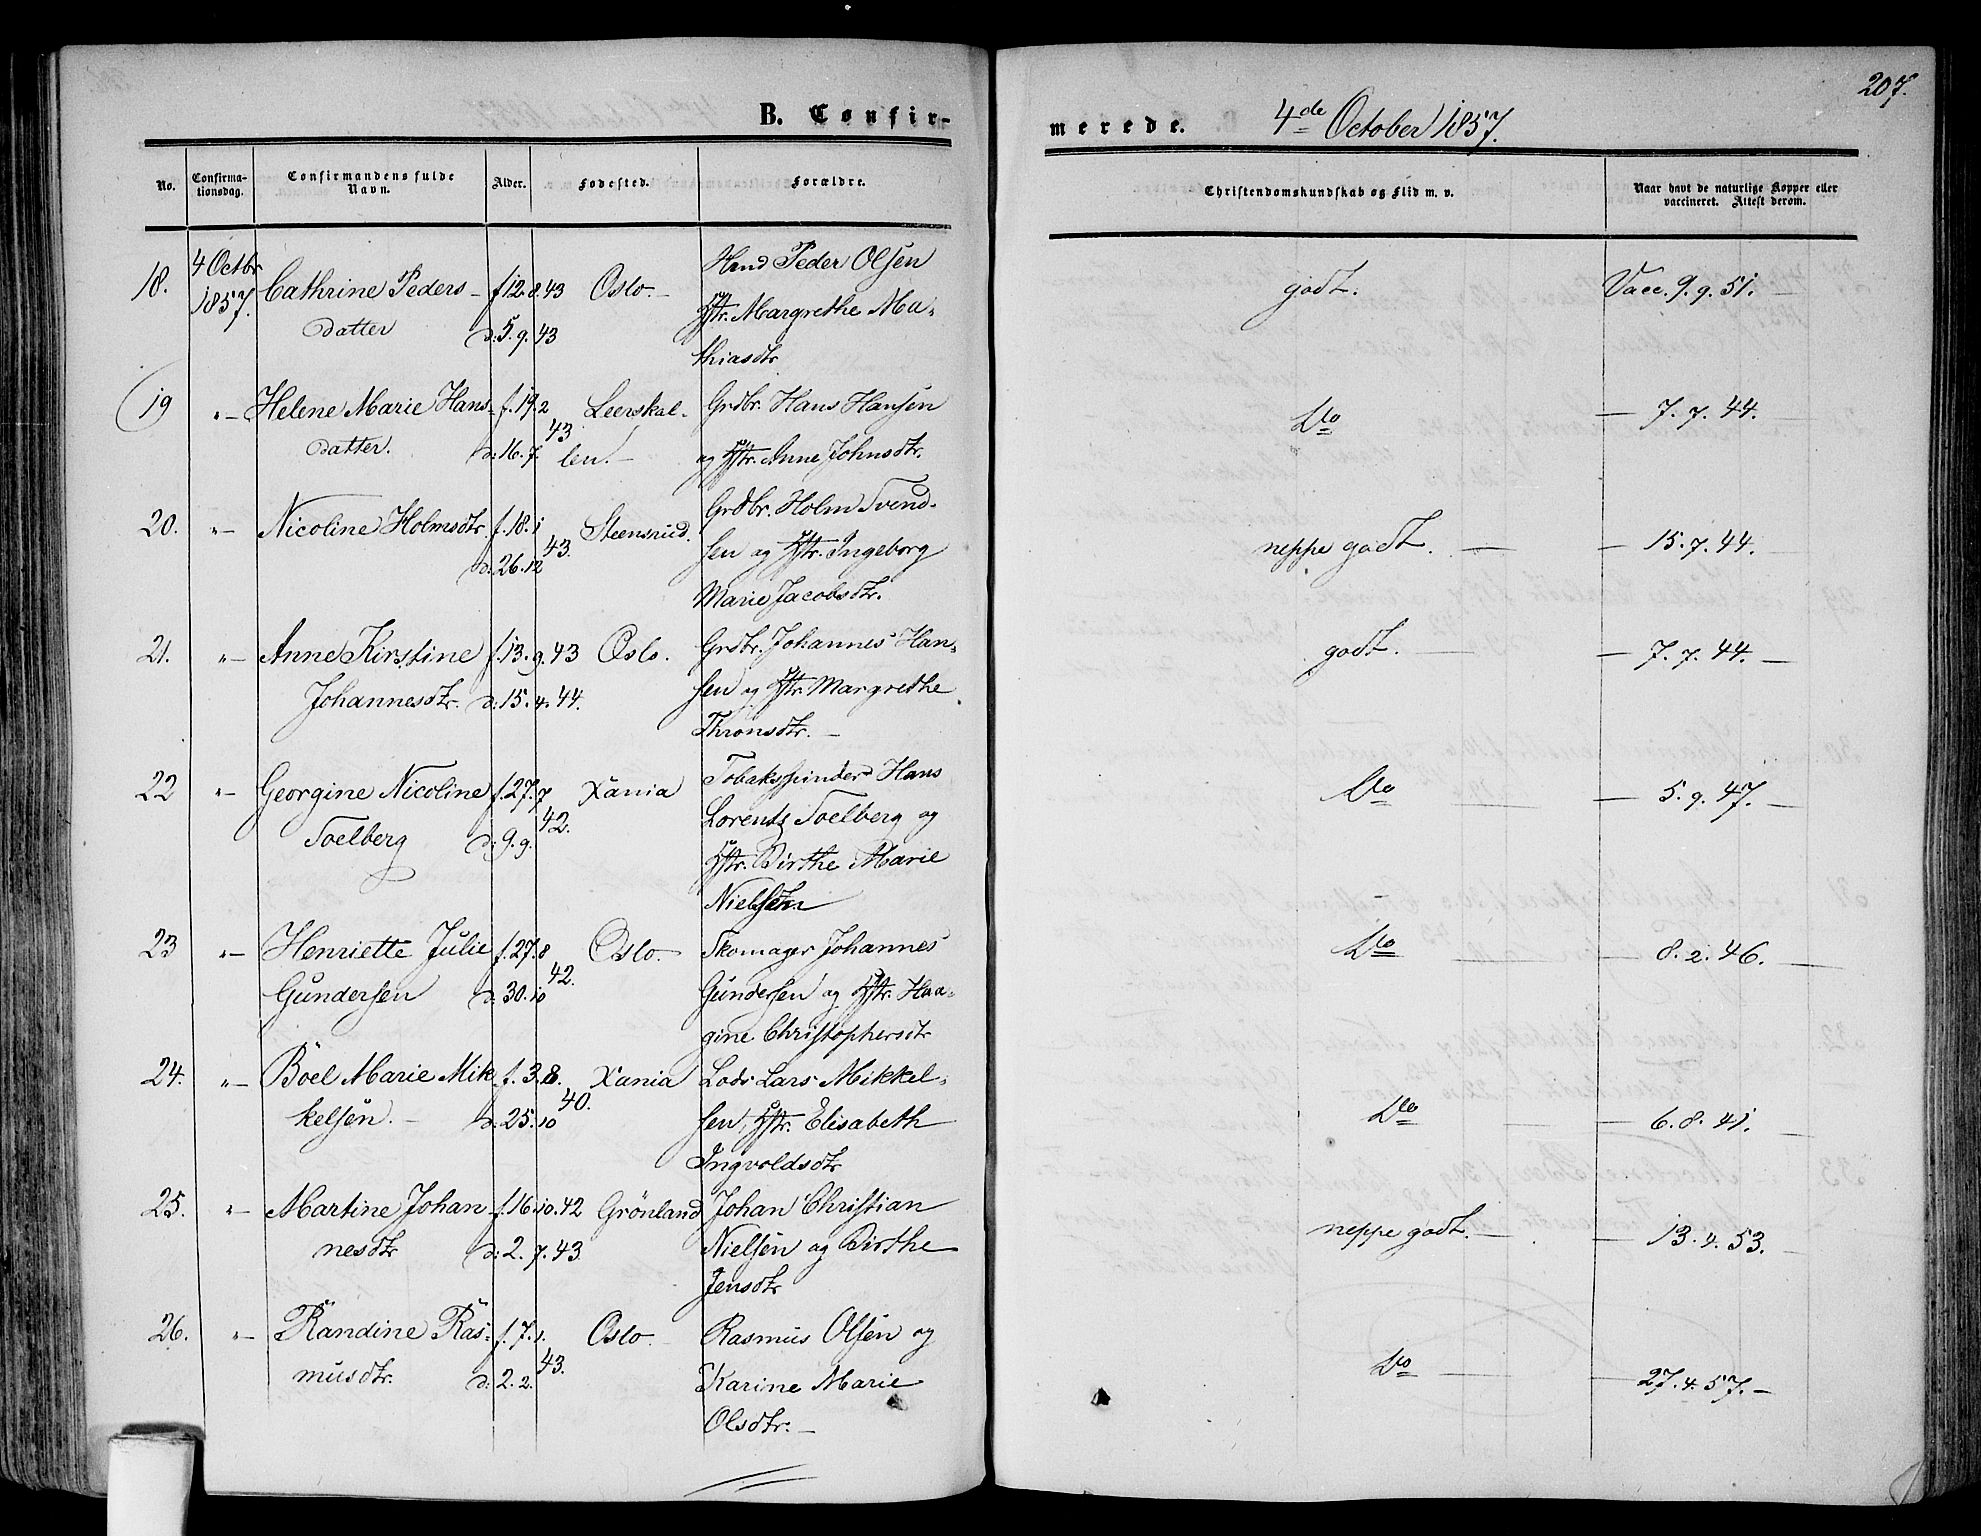 207.
B. Confir-
merede. 4de October 1857.
No. Confirma-tionsdag. Confirmandens fulde Navn. Alder. Fødested. Forældre. Christendomskundskab og Flid m. v. Naar havt de naturlige Kopper eller vaccineret. Attest derom.
18. 4 Octbr Cathrine Peders- f 12.8.43 Oslo.- Hmd Peder Olsen godt. Vacc. 9.9.51.-
1857. datter d: 5.9.43 Hstr. Margrethe Ma-
thiasdtr.
19 "- Helene Marie Hans- f. 19.2 Leerskal- Grdbr. Hans Hansen Do - 7.7.44.-
datter. d: 16.7. 43. len.- og Hstr. Anne Johnsdtr.
20. "- Nicoline Holmsdtr. f. 18.1 Steensrud. Grdbr. Holm Svend- neppe godt. - - 15.7.44.-
d: 26.12 43. sen og Hstr. Ingeborg
Marie Jacobsdtr.
21. "- Anne Kirstine f. 13.9.43 Oslo. Grdbr. Johannes Han- godt. - - 7.7.44.-
Johannesdtr. d: 15.4.44. sen og Hstr. Margrethe
Thronsdtr.-
22 "- Georgine Nicoline f. 27.7 Xania Tobaksspinder Hans Do - - 5.9.47.-
Soelberg d: 9.9. 42. Lorentz Soelberg og
Hstr. Birthe Marie
Nielsen
23 "- Henriette Julie f. 27.8 Oslo.- Skomager Johannes Do - - 8.2.46.-
Gundersen d. 30.10 42. Gundersen og Hstr. Haa-
gine Christophersdtr
24. "- Böel Marie Mik- f. 3.8. Xania Lods Lars Mikkel- Do - - 6.8.41.-
kelsen.- d: 25.10 40. sen, Hstr. Elisabeth
Ingvoldsdtr
25. "- Martine Johan- f. 16.10.42 Grönland Johan Christian neppe godt.- - 13.4.53.
nesdtr d: 2.7.43 Nielsen og Birthe
Jensdtr
26. "- Randine Ras- f. 7.1. Oslo.- Rasmus Olsen og Do - - 27.4.57.-
musdtr. d: 2.2. 43. Karine Marie
Olsdtr.-